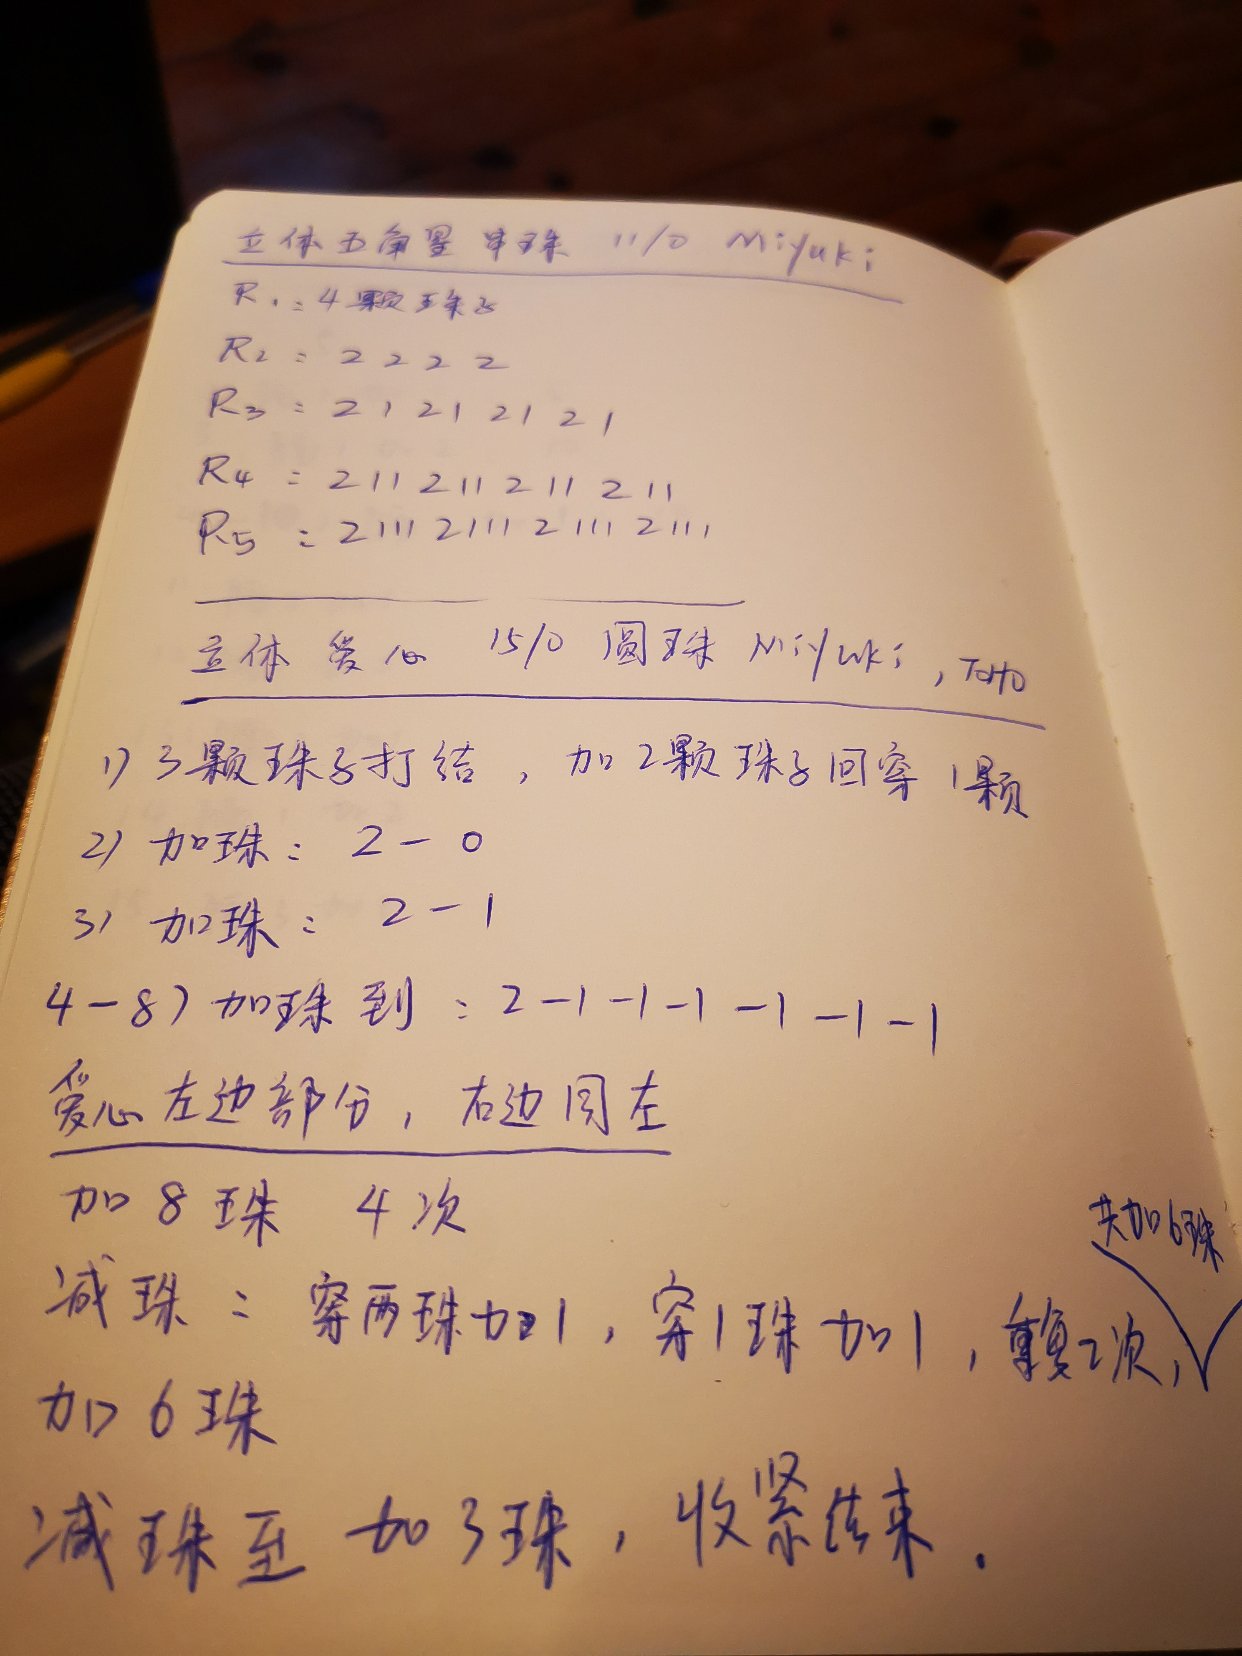 立体五角星串珠 11/0 Miyuki
R1: 4颗珠子
R2: 2 2 2 2
R3: 21 21 21 21
R4: 211 211 211 211
R5: 2111 2111 2111 2111
立体爱心 15/0 圆珠 Miyuki, TOHO
1) 3颗珠子打结, 加2颗珠子回穿1颗
2) 加珠: 2-0
3) 加珠: 2-1
4-8) 加珠到: 2-1-1-1-1-1-1
爱心左边部分, 右边同左
加8珠 4次
共加6珠
减珠: 穿两珠加1, 穿1珠加1, 重复2次,
加6珠
减珠至加3珠, 收紧结束.